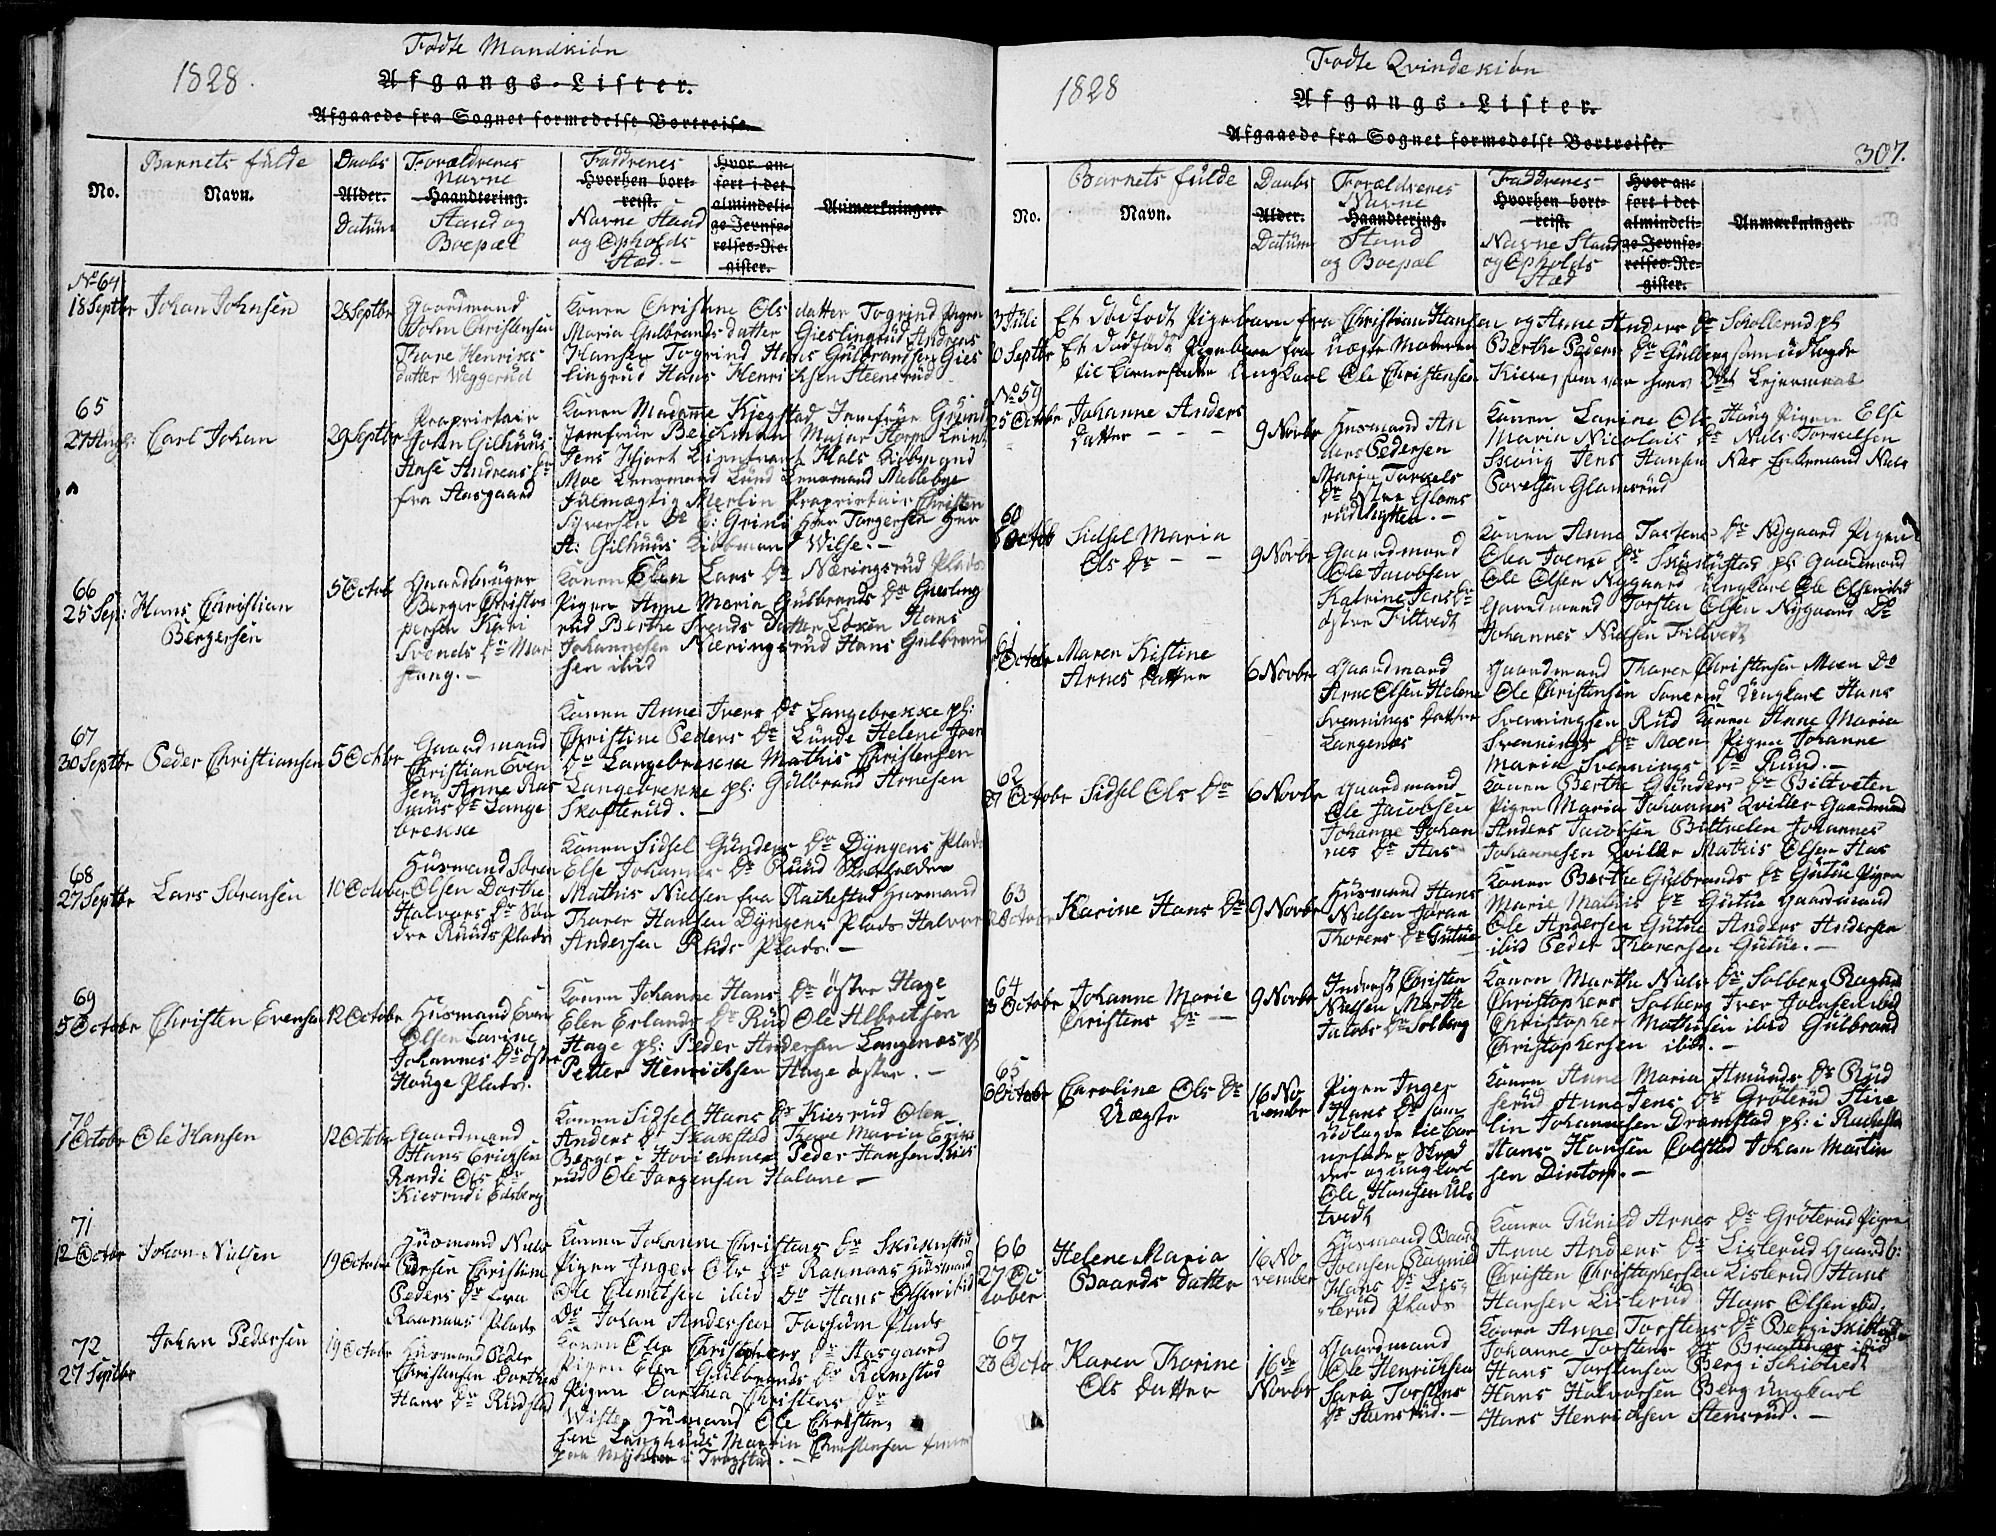 Fødte Mandkiön
1828.
Afgangs-Lister.
Afgaaede fra Sognet formedelst Bortreise.
No.
Barnets fulde
Navn.
Daabs
Alder.
Datum
Forældrenes
Navne
Haandtering.
Stand og
Boepæl
Faddrenes
Hvorhen bort-
reist.
Navne Stand
og Opholds
Stæd. -
Hvor an-
ført i det
almindeli-
ge Jevnfø-
relses-Re-
gister.
Anmærkninger.
No 64
18 Septbr Johan Johnsen
28 Septbr
Gaardmand
John Christensen
Thore Henriks
datter Weggerud
Konen Christine Ols datter Togrind Pigen
Maria Gulbrands datter Gieslingrud Andreas
Hansen Togrind Hans Gulbrandsen Gies
lingrud Hans Henricksen Steensrud
65
27 Augs: Carl Johan
29 Septbr
Proprietair
John Gilhuus
Anse Andreas Dr
fra Aasgaard
Konen Madame Kjegstad Jomfrue Grund
Jomfrue Beickman Major Storm
Jens Hjort Lieutnant Hals Kiøbmand
Moe Lensmand Lund Lensmand Melleby
fulmægtig Merlin Proprietair Christen
Syversen Do C: Grini Herr Torgersen Herr
A: Gilhuus Kiøbmand Wilse. -
66
25 Sep: Hans Christian
Bergersen
5 Octobr
Gaardbruger
Berger Christo
persen Kari
Svends Dr Mør
stang. -
Konen Elen Lars Dr Næringsrud Plads
Pigen Anne Maria Gulbrands Dr Giesling
rud Berthe Svends Datter Løken Hans
Johannesen Næringsrud Hans Gulbrand
sen ibid
67
30 Septbr Peder Christiansen
5 Octbr
Gaardmand
Christian Even
sen Anne Ras
mus Dr Lange
brekke
Konen Anne Ivers Dr Langebrekke pl:
Christine Peders Dr Lunde Helene Iver
Dr Langebrekke Mathis Christensen
Langebrekke pl: Gulbrand Arnesen
Skofterud. -
68
27 Septbr Lars Sörensen
10 Octobr
Huusmand Sören
Olsen Dorthe
Halvors Dr Søn
dre Ruuds Plads
Konen Sidsel Gunders Dr Dyngens Plads
Else Johannes Dr Ruud
Mathis Nielsen fra Rackestad Huusmand
Thorer Hansen Dyngens Plads Halvor
Andersen Ruds Plads. -
69
5 October Christen Evensen
12 Octobr
Huusmand Even
Olsen Larine
Johannes Dr østre
Hauge Plads.
Konen Johanne Hans Dr østre Hage
Elen Erlands Dr Rud Ole Albretsen
Hage pl: Peder Andersen Langenæs pl
Petter Henricksen Hage østre. -
70
1 Octobr Ole Hansen
12 Octobr
Gaardmand
Hans Ericksen
Randi Ols Dr
Kiesrud i Eidsberg
Konen Sidsel Hans Dr Kiesrud Olen
Anders Dr Skakestad Thore Maria Erics
Berger i Hovi annex Peder Hansen Kies
rud Ole Jorgensen Halane -
71
12 Octbr Johan Nielsen
19 Octobr
Huusmand Niels
Edersen Christine
Peders Dr Lra
Raanaas Plads
Konen Johanne Christens Dr
Pigen Inger Ols Dr Raanaas Huusmand
Ole Clemetsen ibid Do Hans Olsen ibid
Do Johan Andersen Fossum Plads
72
27 Septbr
Johan Pedersen
19 Octobr
Huusmand Peder
Christensen Dorthea
Hans Dr Rudstad
Konen Olea Christophers Dr Aasgaard
Pigen Elen Gulbrands Dr Ramstad
Pigen Dorthea Christens Dr
Wister Husmand Ole Christen
sen Langhuus Martin Christensen
paa Myhrer i Trøgstad. -
Fødte Qvindekiön
1828
Afgangs-Lister.
Afgaaede fra Sognet formedelst Bortreise.
307.
No.
Barnets fulde
Navn.
Daabs
Alder.
Datum
Forældrenes
Navne
Haandtering.
Stand
og Boepæl
Faddrenes
Hvorhen bort-
reist.
Navne Stand
og Opholds
Stæd
Hvor an-
ført i det
almindeli-
ge Jevnfø-
relses-Re-
gister.
Anmærkninger.
3 Juli Et dødfødt Pigebarn fra Christian Hansen og Anne Anders Dr Skollerud pl
10 Septbr Et dødfødt Pigebarn fra uægte Moderen Berthe Peders Dr Gulberg som udlagde
til barnefader Ungkarl Ole Christensen Kieve, som var hans 2det Lejermaal
No 59
25 Octobr Johanne Anders
datter - - -
9 Novbr
Huusmand An
ders Pedersen
Maria Torkels
Dr Glams
rudhytten. -
Konen Larine Ols Haug Pigen Else
Maria Nicolais Dr Niels Torkelsen
Skoug Jens Hansen Næs Enkemand Niels
Povelsen Glamsrud
60
Octob Sidsel Maria
Ols Dr - -
9 Novbr
Gaardmand
Ole Jacobsen
Katrine Jens Dr
østre Tillvedt
Konen Anne Torstens Dr Nygaard Pigen
Olea Joens Dr pl: Gaardmand
Ole Olsen Nygaard Ungkarl Ole Olsen ibid
Gaardmand Torsten Olsen Nygaard Do
Johannes Nielsen Tillvedt
61
Octobr Maren Kistine
Arnes Datter
6 Novbr
Gaardmand
Arne Olsen Helene
Svennings datter
Langenæs
Gaardmand Thorer Christensen Moen Do
Ole Christensen Sonerud Ungkarl Hans
Svenningsen Rud Konen Anne Maria
Svennings Dr Moen Pigen Johanne
Maria Svennings Dr Rud. -
62
Octobr Sidsel Ols Dr
6 Novbr
Gaardmand
Ole Jacobsen
Johanne Johan
nes Dr Aas
Konen Berthe Gunders Dr Biltveten
Pigen Maria Johannes Qviller Gaardmand
Anders Jacobsen Biltvelen Johannes
Johannesen Qviller Mathis Olsen Aas
63
Octobr Karine Hans Dr
9 Novbr
Huusmand Hans
Nielsen Joran
Thorers Dr Gutue
Konen Berthe Gulbrands Dr Gutue Pigen
Marie Mathis Dr Gutue Gaardmand
Ole Andersen Gutue Anders Andersen
ibid Peder Thoresen Gutue. -
64
3 Octobr Johanne Marie
Christens Dr - -
9 Novbr
Inderst Christen
Nielsen Marthe
Jacobs Dr Solberg
Konen Marthe Niels Dr Solberg Ragnild
Christophers Solberg Iver Johnsen ibid
Christopher Mathisen ibid Gulbrand
Christophersen ibid. -
65
6 Octobr Caroline Ols Dr
Uægte
16 No
vember
Pigen Inger
Hans Dr som
udlagde til bar
nefader Skræd
der og ungkarl
Ole Hansen Ul
tvedt
Konen Anne Maria Amunds Dr Rud
serud Anne Jens Dr Grøterud Stine
lin Johannesen Dramstad pl: i Rackestad
Hans Hansen Colstad Johan Martin
sen Dintorp. -
66
27 Oc
tober
Helene Maria
Baards datter
16 No
vember
Huusmand Baard
Ivensen Ragnild
Hans Dr Lis-
lerud Plads
Konen Gunild Arnes Dr Grøterud Pigen
Anne Anders Dr Lislerud Gaardb:
Christen Christophersen Lislerud Hans
Hansen Lislerud Hans Olsen ibid.
67
23 Octo Karen Thorine
Ols datter
16de
Novbr
Gaardmand
Ole Henricksen
Sara Torstens
Dr Stensrud. -
Konen Anne Torstens Dr Berg i Skibtvedt
Johanne Torstens Dr Braatene ibid
Hans Torstensen Berg i Schibtvedt
Hans Halvorsen Berg Ungkarl
Hans Henricksen Stensrud. -